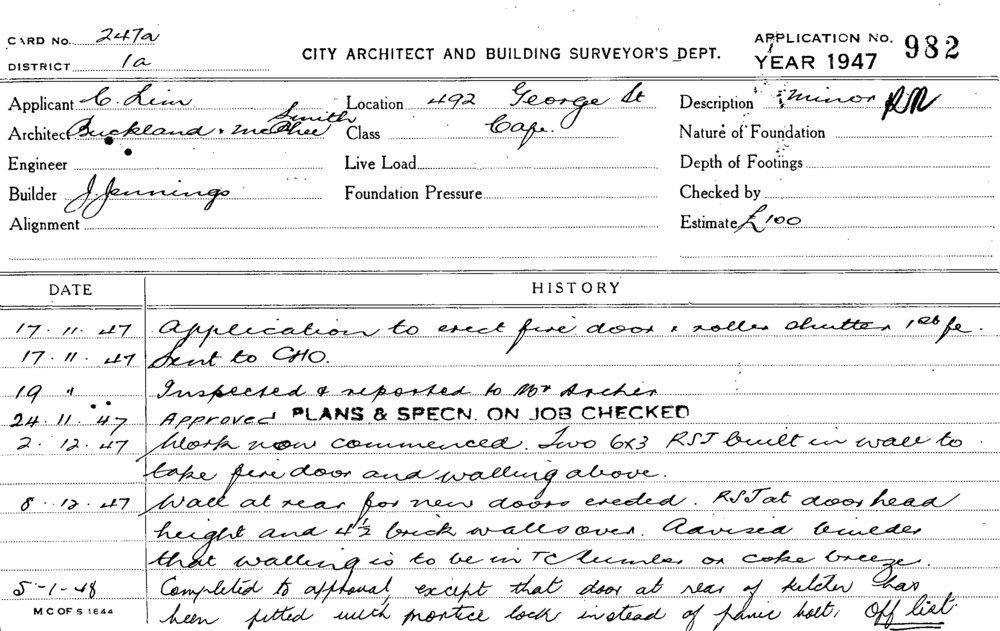 CARD No. 247a
DISTRICT 1a
CITY ARCHITECT AND BUILDING SURVEYOR'S DEPT.
APPLICATION No. 982
YEAR 1947
Applicant C. Lim
Location 492 George St
Description Minor
Smith
Architect Buckland & McPhee
Class Cafe.
Nature of Foundation
Engineer
Live Load
Depth of Footings
Builder J. Jennings
Foundation Pressure
Checked by
Alignment
Estimate £100
DATE HISTORY
17. 11. 47 Application to erect fire door & roller shutter 1st
17. 11. 47 Sent to CHO.
19 " Inspected & reported to Mr Archer
24. 11. 47 Approved PLANS & SPECN. ON JOB CHECKED
2. 12. 47 Work now commenced. Two 6x3 RSJ built in wall to
take fire door and walling above.
8. 12. 47 Wall at rear for new doors erected. RSJ at door head
height and 4½ brick walls over. Advised builder
that walling is to be in TC lumber or coke breeze.
5-1-48 Completed to approval, except that door at rear of kitchen has
been fitted with mortice lock instead of panic bolt. Off list.
M C OF S 1644